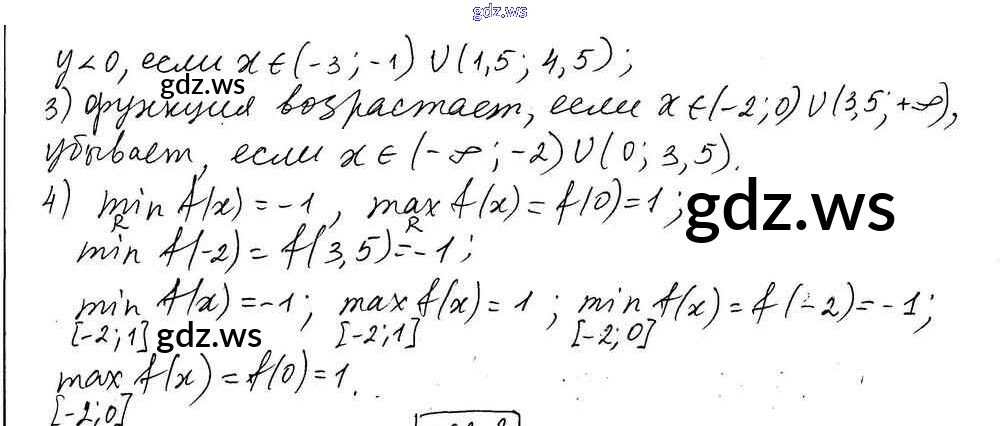 gdz.ws
y<0, если x∈(-3;-1)∪(1,5; 4,5);
gdz.ws
3) функция возрастает, если x∈(-2;0)∪(3,5;+∞),
убывает, если x∈(-∞;-2)∪(0; 3,5).
4) min f(x)=-1, max f(x)=f(0)=1; gdz.ws
R R
min f(-2)=f(3,5)=-1;
min f(x)=-1; max f(x)=1; min f(x)=f(-2)=-1;
[-2;1] gdz.ws [-2;1] [-2;0]
max f(x)=f(0)=1.
[-2;0]